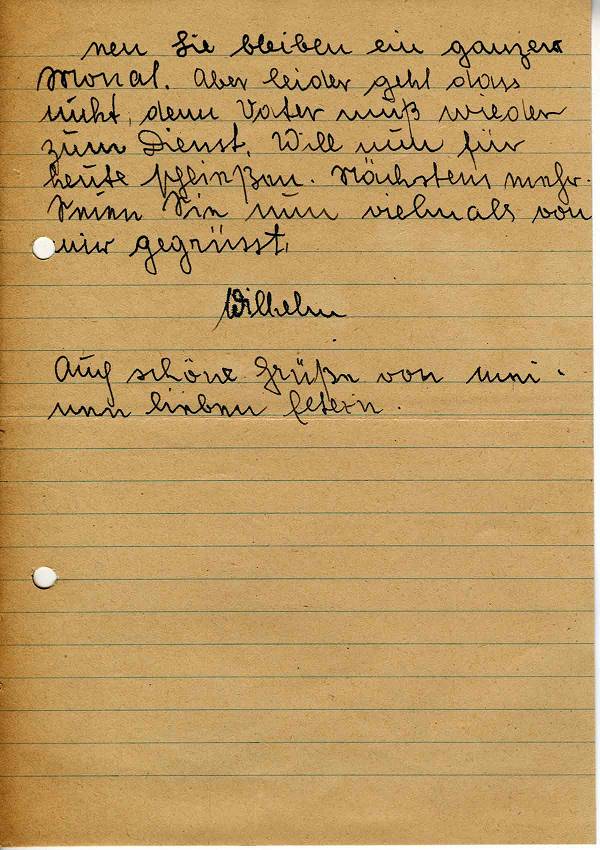 nen Sie bleiben ein ganzen
Monat. Aber leider geht dass
nicht, denn Vater muß wieder
zum Dienst. Will nun für
heute schleißen. Nächstens mehr.
Seien Sie nun vielmals von
mir gegrüsst.
Wilhelm
Auch schöne Grüße von mei-
nen lieben